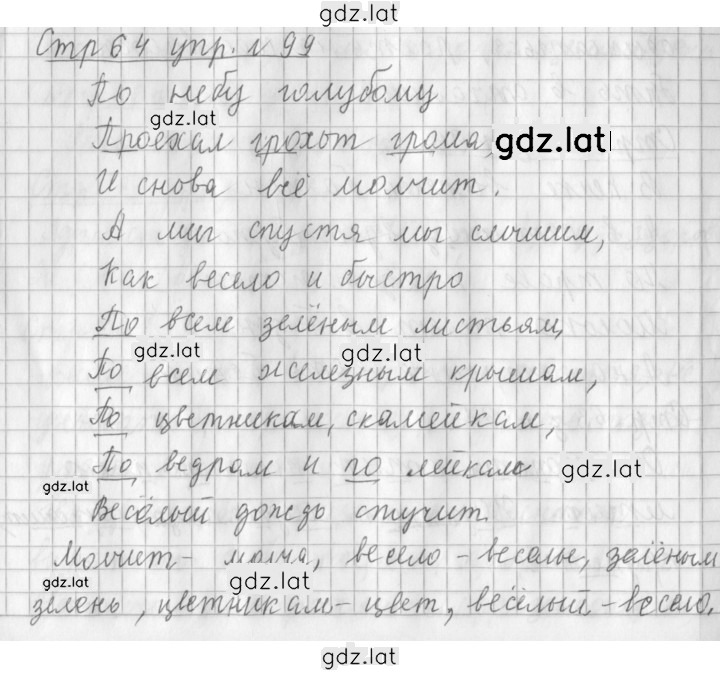 gdz.lat
Стр 64 упр. № 99
По небу голубому
gdz.lat
Проехал грохот грома,
gdz.lat
И снова всё молчит.
А миг спустя мы слышим,
Как весело и быстро
По всем зелёным листьям,
gdz.lat gdz.lat
По всем железным крышам,
По цветникам, скамейкам,
По ведрам и по лейкам
gdz.lat gdz.lat
Весёлый дождь стучит.
Молчит - молча, весело - веселье, зелёным
gdz.lat gdz.lat
зелень, цветникам - цвет, весёлый - весело.
gdz.lat